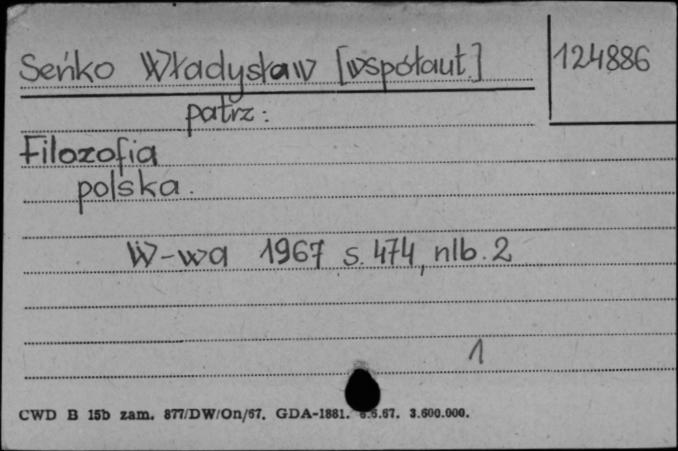 Seńko Władysław [współaut.] 124886
patrz:
Filozofia
polska.
W-wa 1967 s. 474, nlb. 2
1
CWD B 15b zam. 877/DW/On/67. GDA-1881. 6.6.67. 3.600.000.